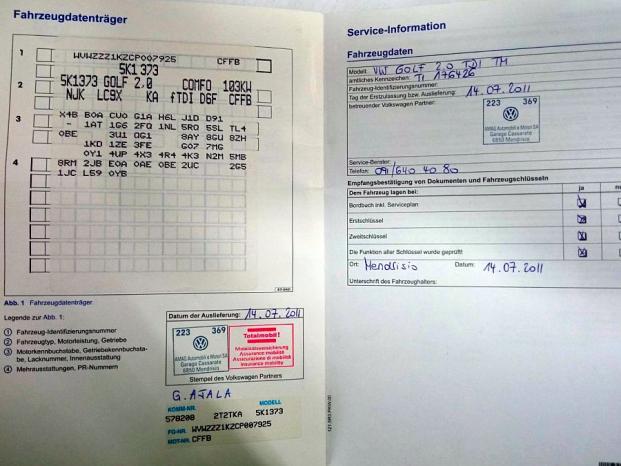 Fahrzeugdatenträger
1
WVWZZZ1KZCP007925 CFFB
5K1373
2
5K1373 GOLF 2.0 COMFO 103KW
NJK LC9X KA fTDI D6F CFFB
3
X4B BOA CUO G1A H6L J1D D91
- 1AT 1G6 2FQ 1NL 5RQ 5SL TL4
OBE 3U1 OG1 8AY 8GU 8ZH
1KD 1ZE 3FE GO7 7MG
4
OY1 4UP 4X3 4R4 4K3 N2M 5MB
8RM 2JB EOA OAE OBE 2UC 2G5
1JC L59 OYB
Abb. 1 Fahrzeugdatenträger
Legende zur Abb. 1:
1 Fahrzeug-Identifizierungsnummer
2 Fahrzeugtyp, Motorleistung, Getriebe
3 Motorkennbuchstabe, Getriebekennbuchsta-
be, Lacknummer, Innenausstattung
4 Mehrausstattungen, PR-Nummern
Datum der Auslieferung: 14.07.2011
223 369
AMAG Automobili e Motori SA
Garage Cassarate
6850 Mendrisio
Totalmobil!
Mobilitätsversicherung
Assurance mobilité
Assicurazione di mobilità
Insurance mobility
Stempel des Volkswagen Partners
G. AJALA
KOMM-NR. MODELL
578208 2T2TKA 5K1373
FG-NR. WVWZZZ1KZCP007925
MOT-NR. CFFB
Service-Information
Fahrzeugdaten
Modell: VW GOLF 2.0 TDI TH
amtliches Kennzeichen: TI 176426
Fahrzeug-Identifizierungsnummer:
Tag der Erstzulassung bzw. Auslieferung: 14.07.2011
betreuender Volkswagen Partner:
223 369
AMAG Automobili e Motori SA
Garage Cassarate
6850 Mendrisio
Service-Berater:
Telefon: 091/640 40 80
Empfangsbestätigung von Dokumenten und Fahrzeugschlüsseln
Dem Fahrzeug lagen bei: ja
Bordbuch inkl. Serviceplan
Erstschlüssel
Zweitschlüssel
Die Funktion aller Schlüssel wurde geprüft!
Ort: Mendrisio Datum: 14.07.2011
Unterschrift des Fahrzeughalters: